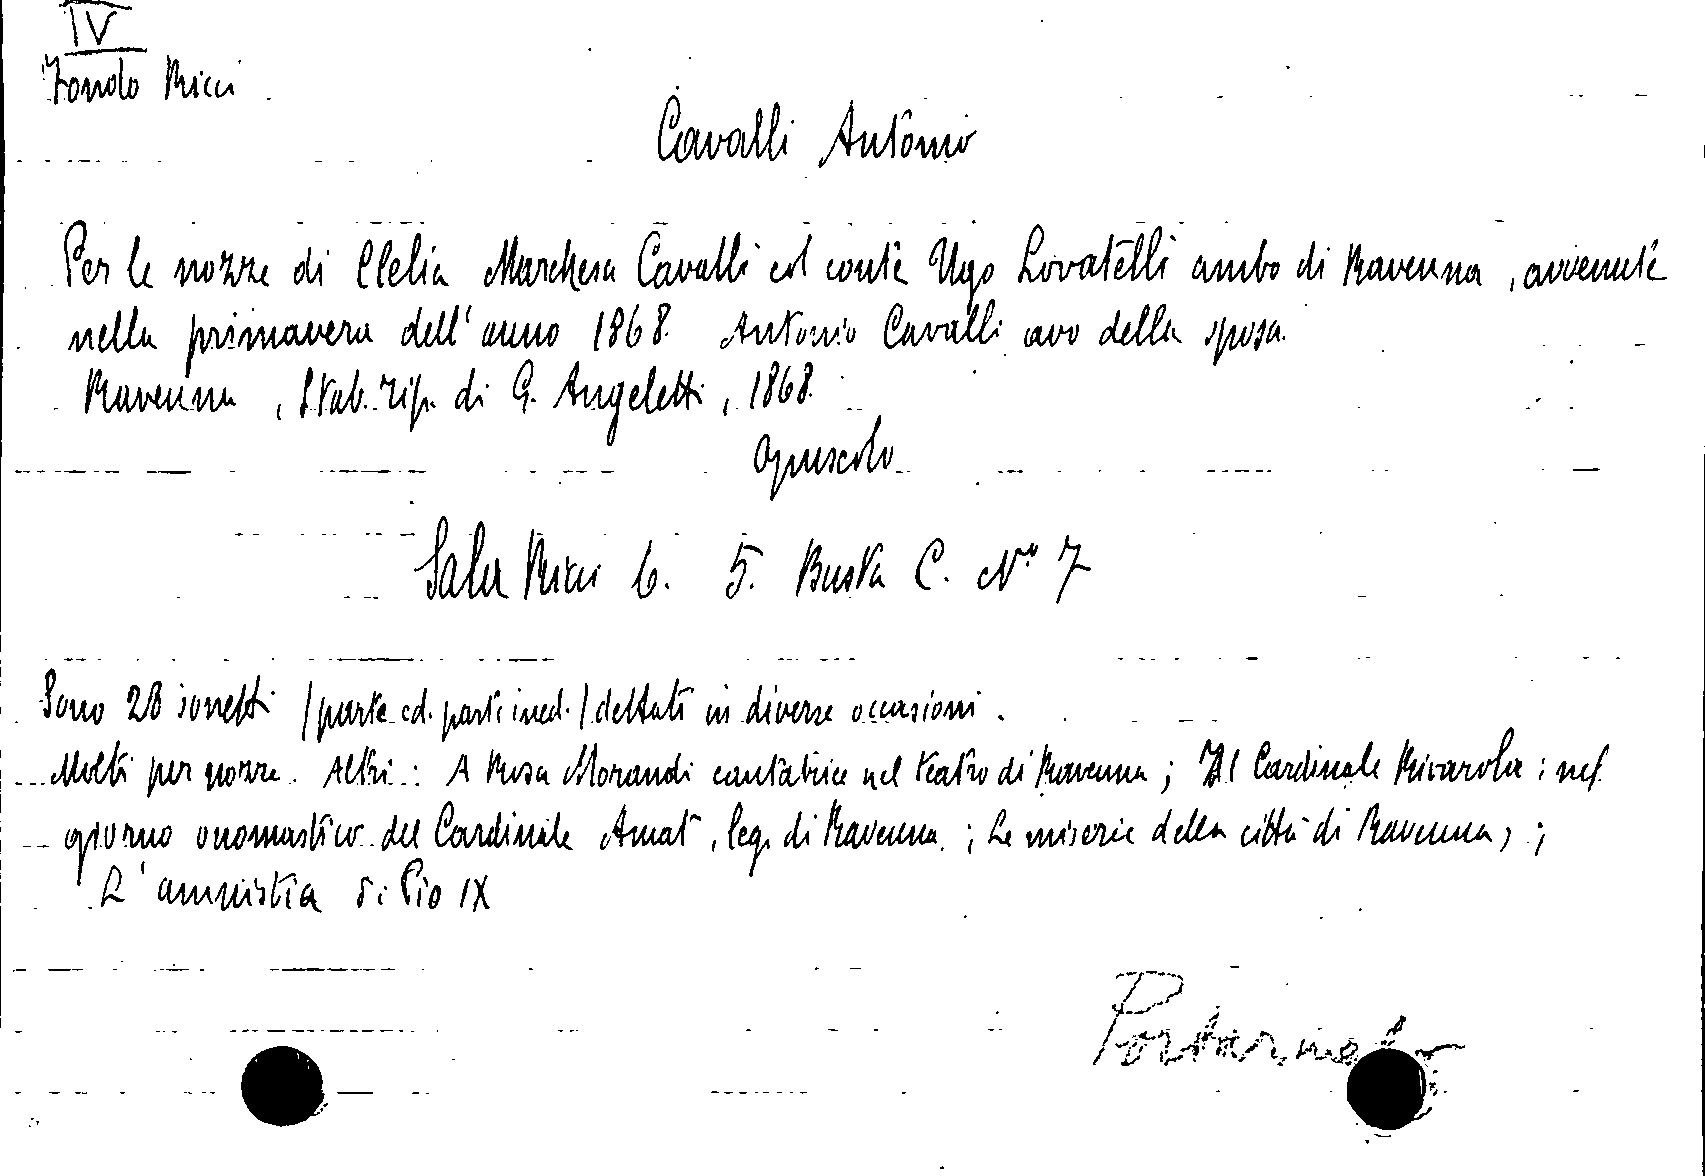 IV
Fondo Ricci
Cavalli Antonio
Per le nozze di Clelia Marchesa Cavalli col conte Ugo Lovatelli ambo di Ravenna, avvenute
nella primavera dell'anno 1868. Antonio Cavalli avo della sposa.
Ravenna, Stab. Tip. di G. Angeletti, 1868.
opuscolo
Sala Ricci 6. 5. Busta C. N° 7
Sono 28 sonetti / parte ed. parte ined. / dettati in diverse occasioni.
Molti per nozze. Altri: A Rosa Morandi cantatrice nel teatro di Ravenna; Al Cardinale Rivarola; nel
giorno onomastico del Cardinale Amat, leg. di Ravenna; Le miserie della città di Ravenna,;
L'amnistia di Pio IX